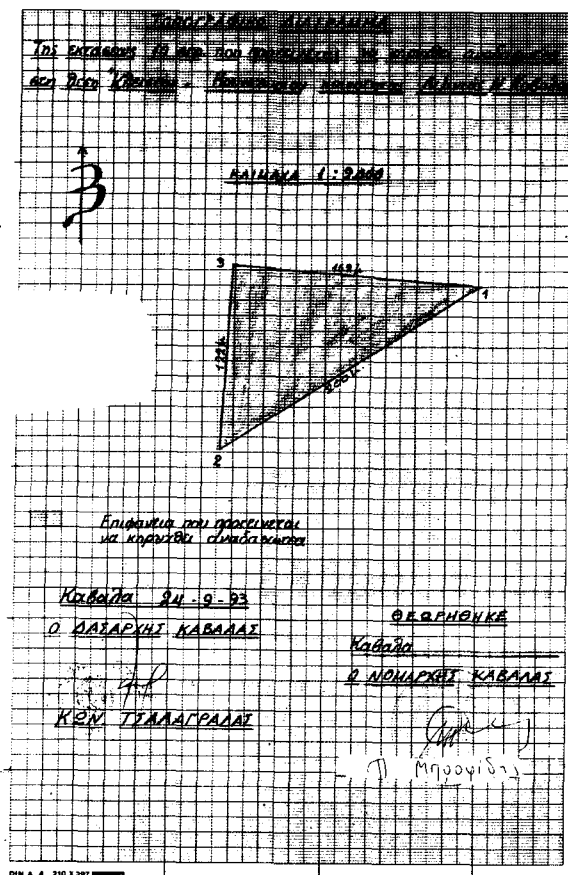 Τοπογραφικο Διαγραμμα
Της εκτασεως 10 στρ. που προτεινεται να κηρυχθει αναδασωτεα
στη θεση - Κοινοτητος Ν. Καβαλας
ΚΛΙΜΑΚΑ 1 : 2.000
Β
3
169 μ.
1
122 μ.
200 μ.
2
Επιφανεια που προτεινεται
να κηρυχθει αναδασωτεα
Καβαλα 24-9-93
Ο ΔΑΣΑΡΧΗΣ ΚΑΒΑΛΑΣ
ΚΩΝ. ΤΣΑΛΑΓΡΑΔΑΣ
ΘΕΩΡΗΘΗΚΕ
Καβαλα
Ο ΝΟΜΑΡΧΗΣ ΚΑΒΑΛΑΣ
DIN A 4 210 X 297